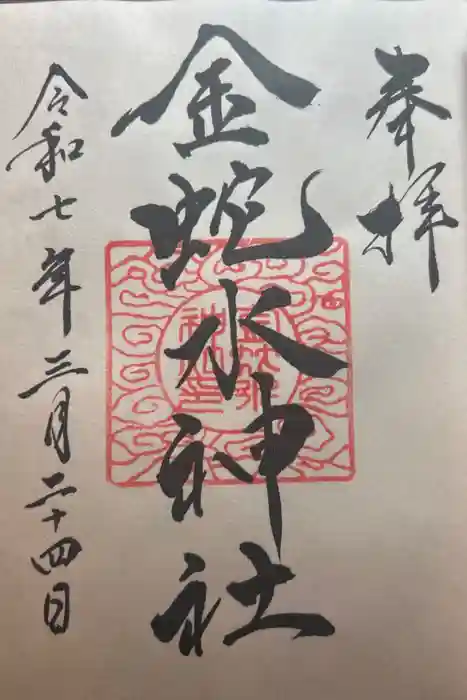 奉拝
金蛇水神社
令和七年三月二十四日